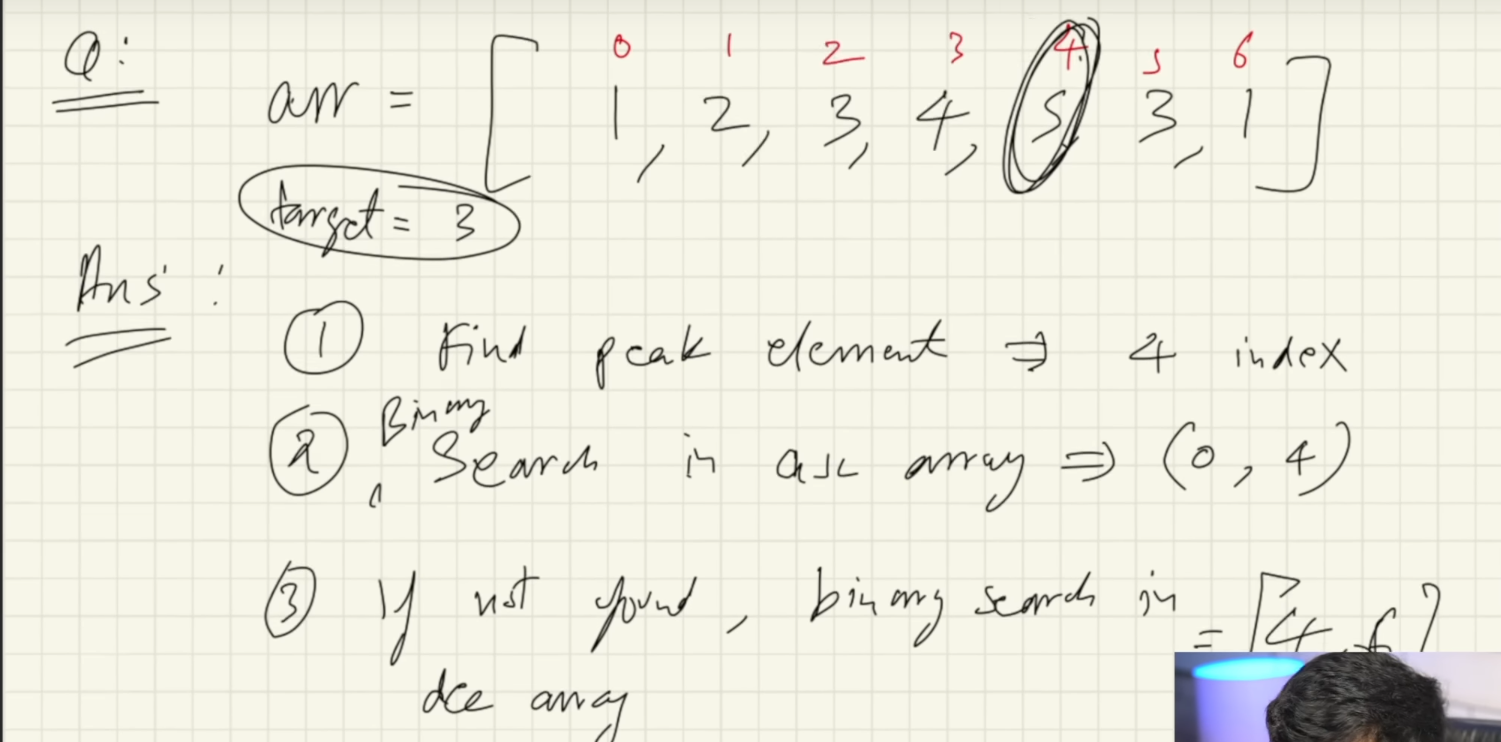 Q:
0 1 2 3 4 5 6
arr = [ 1, 2, 3, 4, 5 3, 1 ]
target = 3
Ans:
① Find peak element ⇒ 4 index
② Binary Search in asc array ⇒ (0, 4)
③ If not found, binary search in = [4, 6]
dce array